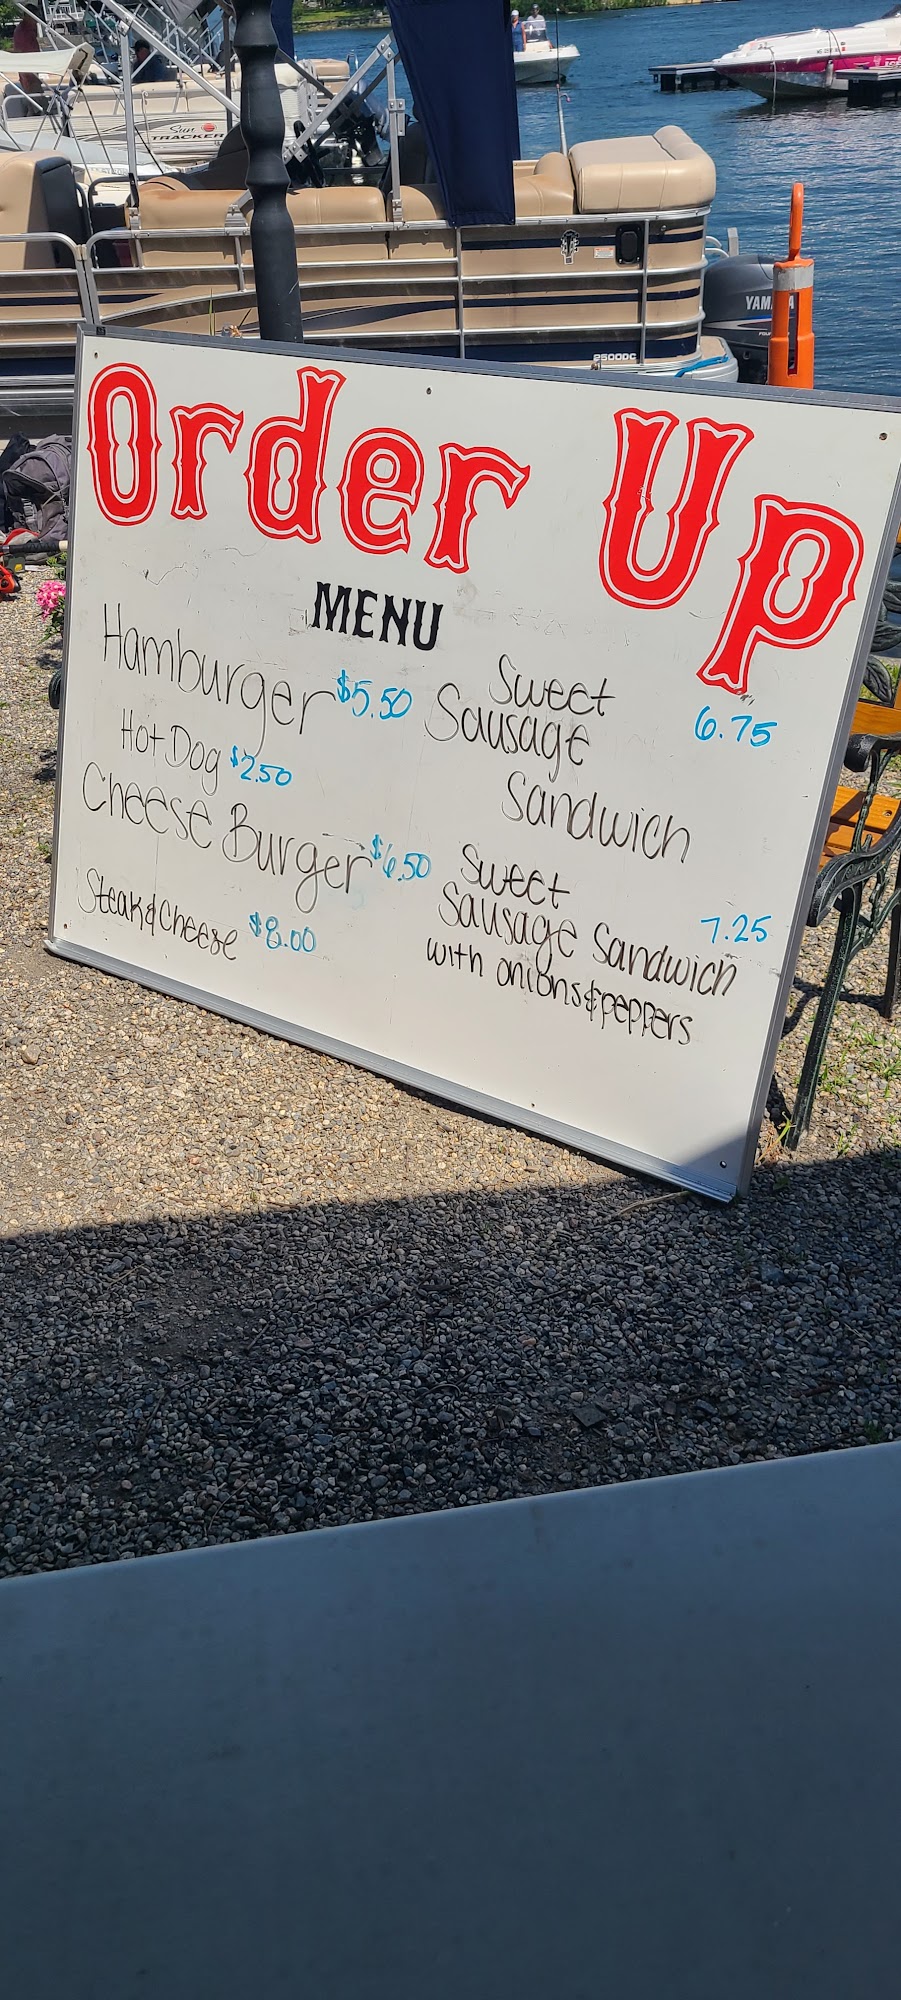 Sun
TRACKER
YAMAHA
2500DC
Order Up
MENU
Hamburger $5.50
Hot Dog $2.50
Cheese Burger $6.50
Steak & Cheese $8.00
Sweet
Sausage 6.75
Sandwich
Sweet
Sausage Sandwich 7.25
with onions & peppers